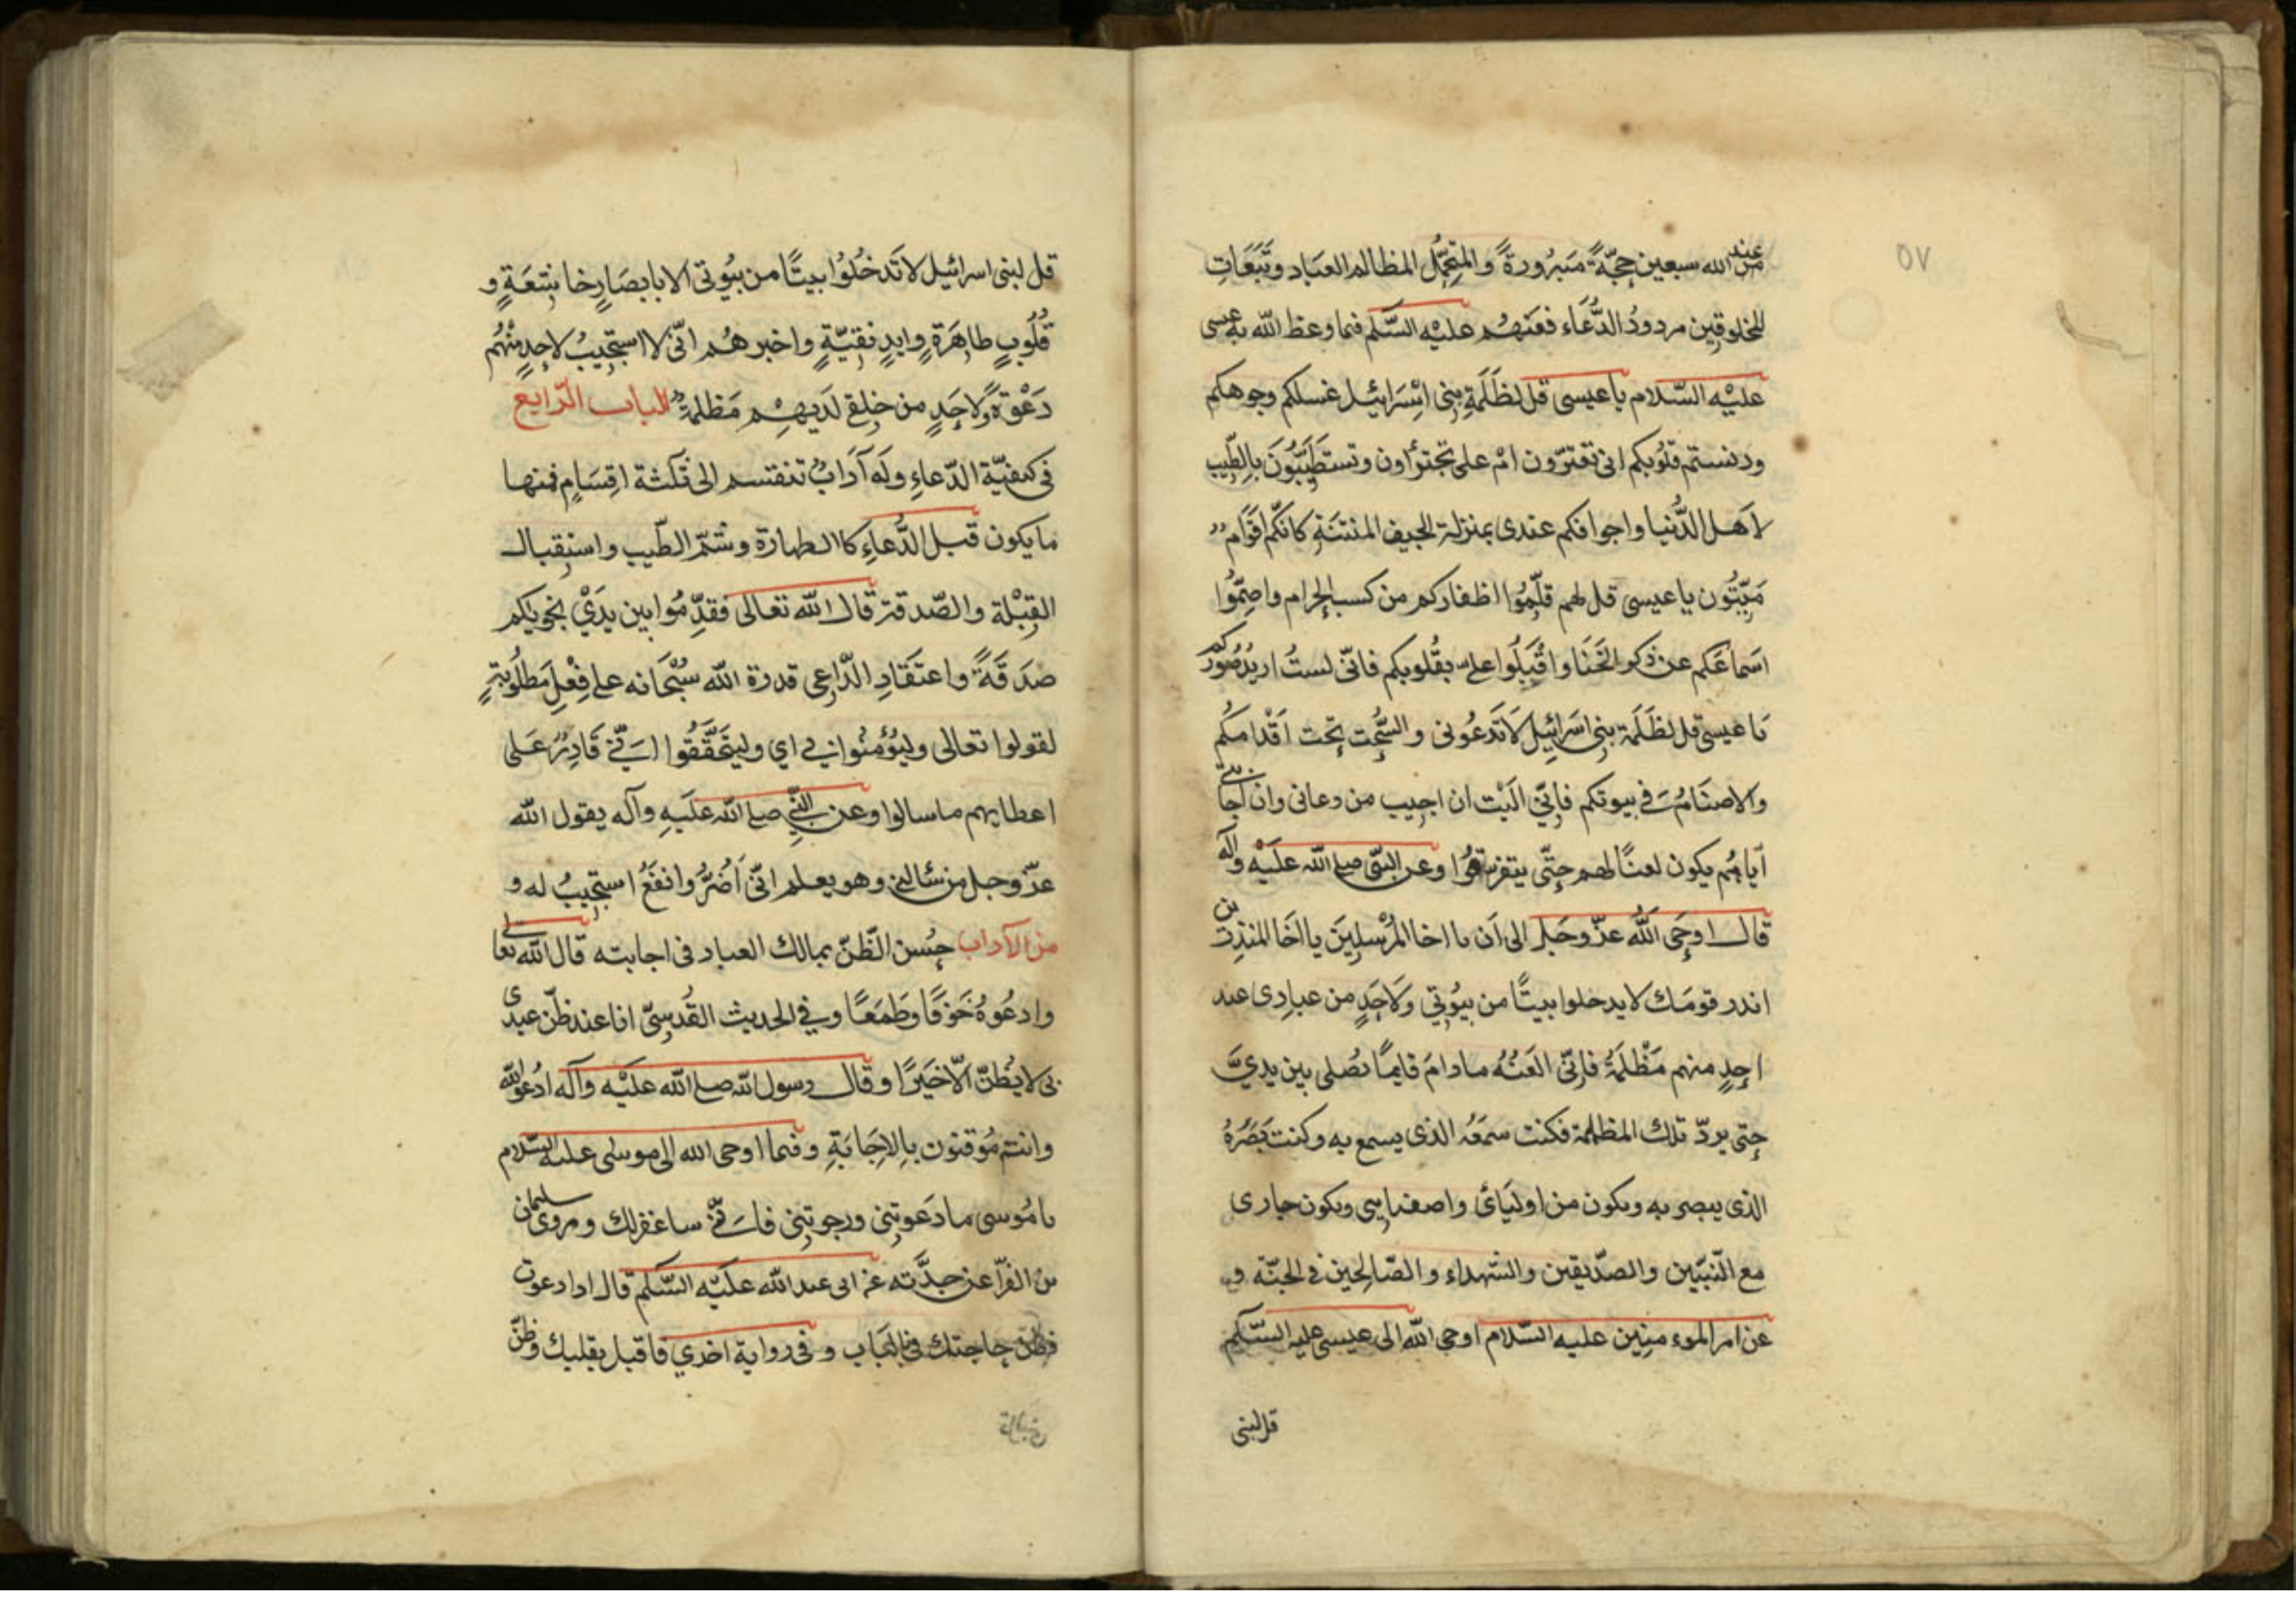 ٥٧
من عند الله سبعين حجّةً مَبرُورةً والمتحمّل المظالم العبَاد وتَبَعَاتِ
المخلوقين مردودُ الدُّعَاء فعنهُم عليْه السَّلم فيما وعظ الله به عيسى
عليْه السّلام يا عيسى قل لظَلَمَةِ بنى اسْرَائيل غسلكم وجوهكم
ودنستم قلوبكم انى تغترّون امْ على تجترأون وتستطَيّبُونَ بالِطّيب
لاَهل الدُّنيا واجوافكم عندى بمنزلة الجيف المنتنَةِ كانّكم اقَوَام
مَيّتُون يا عيسى قل لهم قلّمُوا اظفاركم من كسب الحرام واصِمُّوا
اسَماعَكم عن ذكر الخَنَا واقْبِلُوا علىّ بقُلوبكم فانّى لستُ اريدُ صُورَكم
يَا عيسى قل لظَلَمَة بنى اسَرائيل لاَ تَدعُونى والسُّحِت تحت اَقْدامكُم
والاصنَامُ فى بيوتكم فاِنّى اليْت ان اجيب من دعانى وان اجابتى
ايّاهُم يكون لعنًا لهم حتّى يتفرقوُا وعن النبّى صلى الله علَيْه وآله
قال اوحَى اللّه عزّ وجَل الى اَن يا اخا المرُسلِينَ يا اخَا المنذرين
انذر قومَك لا يدخلوا بيتًا من بيُوتِي وَلاحَدٍ من عبادِى عند
احدٍ منهم مَظْلَمةُ فاِنّى العَنُهُ ما دامَ قايمًا يُصلى بين يدىَّ
حتى يردّ تلك المظلمة فكنت سمَعُه الذى يسمع به وكنت بَصَرَهُ
الذى يبصر به ويكون من اوليَائى واصفيايى ويكون جارى
مع النّبيّين والصدّيقين والشهداء والصّالحين فى الجنّة و
عن امر الموء منِين عليه السّلام اوحى اللّه الى عيسى عليه السّلم
قل لبنى
قل لبنى اسرائيل لا تَدخُلُوا بيتًا من بيُوتى الا بابصَارٍ خاشِعَةٍ و
قُلُوبٍ طاهَرَةٍ وايدٍ نقيّةٍ واخبرهُم انّى لا استجيبُ لاحدٍ منْهُم
دَعْوَةً ولاحَدٍ من خلقِى لدَيهِم مَظلمةٌ الباب الرّابع
فى كيفيّة الدّعاءِ ولَه آدَابٌ تنقسم الى ثَلثة اقِسَامٍ فمنها
ما يكون قبل الدُّعاءِ كاالطهارة وشمّ الطّيب واستِقبال
القِبْلة والصّدقة قال اللّه تعالى فقدّمُوا بين يدَيْ نجويكم
صَدَقَةً واعتقَادِ الدّاعِى قدرة اللّه سُبْحَانه على فِعْلِ مَطلُوبتهِ
لقولوا تعالى وليُؤمنُوا بى اي وليتحَقّقُوا انّى قَادِرٌ عَلى
اعطايهم ما سالوا وعن النّبى صلى اللّه علَيهِ وآله يقول اللّه
عزّ وجل من سَألنى وهو يعلم انّى اَضُرُّ وانفَعُ استجيبُ له و
من الآداب حُسن الّظنّ بمالك العباد فى اجابته قال الله تعالى
وادعُوهُ خَوفًا وطَمَعًا وفي الحديث القُدسىّ انا عند ظنّ عبدى
بى لا يَظنّ الّا خيَرًا وقال رسول الله صلى اللّه عليْه وآله ادُعوا الله
وانتم مُوقنون بالاِجَابَةِ وفيما اوحى الله الى موسى عليه السّلام
يا مُوسى ما دَعَوتنِى ورجوتنِى فانّى ساغفر لك ومروى سليمان
بن الفرّا عن حدّثه عن ابى عبد اللّه علَيْه السّلم قال اذا دعوت
فظن حاجتك بالبَاب وفى رواية اخرى فاقبل بقلبك وظنّ